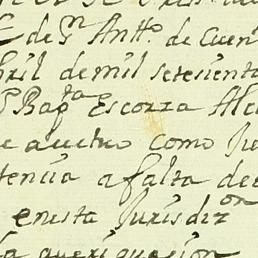 de Sn Antto. de Cuen
bril de mil setesient
Bapta Escorza Alc
e auctuo como Jue
tencia a falta de e
en esta Jurisdizon
la aueriguasion